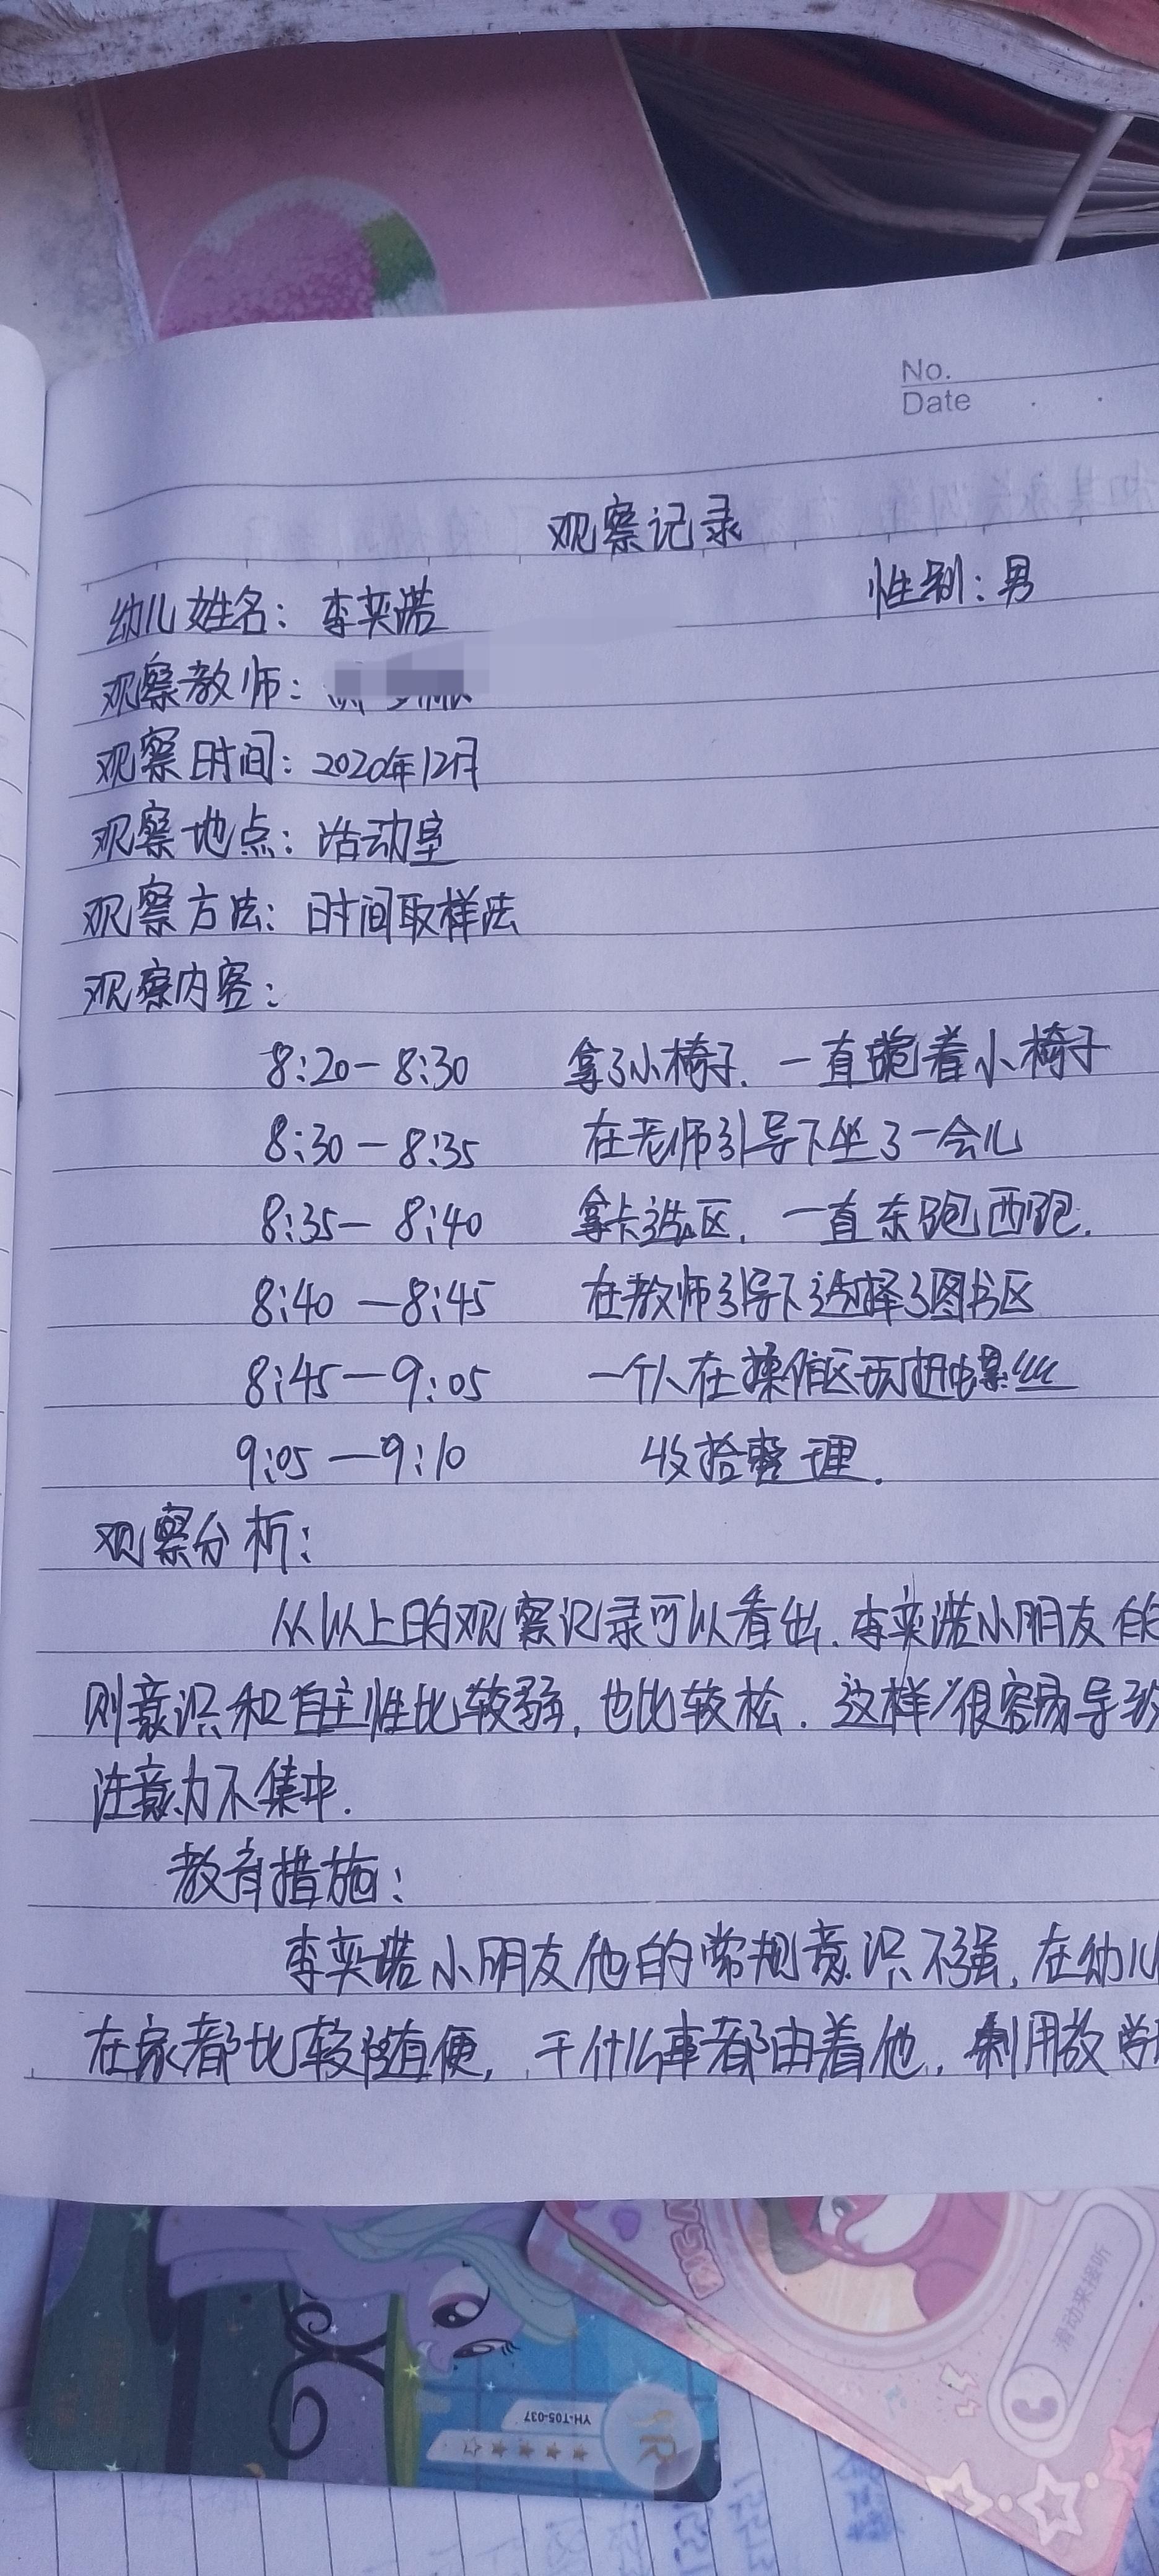 No.
Date
观察记录
幼儿姓名：李奕诺 性别：男
观察教师：
观察时间：2020年12月
观察地点：活动室
观察方法：时间取样法
观察内容：
8:20-8:30 拿了小椅子.一直跪着小椅子
8:30-8:35 在老师引导下坐了一会儿
8:35-8:40 拿卡选区.一直东跑西跑.
8:40-8:45 在教师引导下选择了图书区
8:45-9:05 一个人在操作区
9:05-9:10 收拾整理.
观察分析：
从以上的观察记录可以看出.李奕诺小朋友
则意识和自主性比较弱,也比较松.这样很容易导致
注意力不集中.
教育措施：
李奕诺小朋友他的常规意识不强,在幼儿
在家都比较随便,干什么事都由着他,利用放学
滑动来接听
YH-T05-037